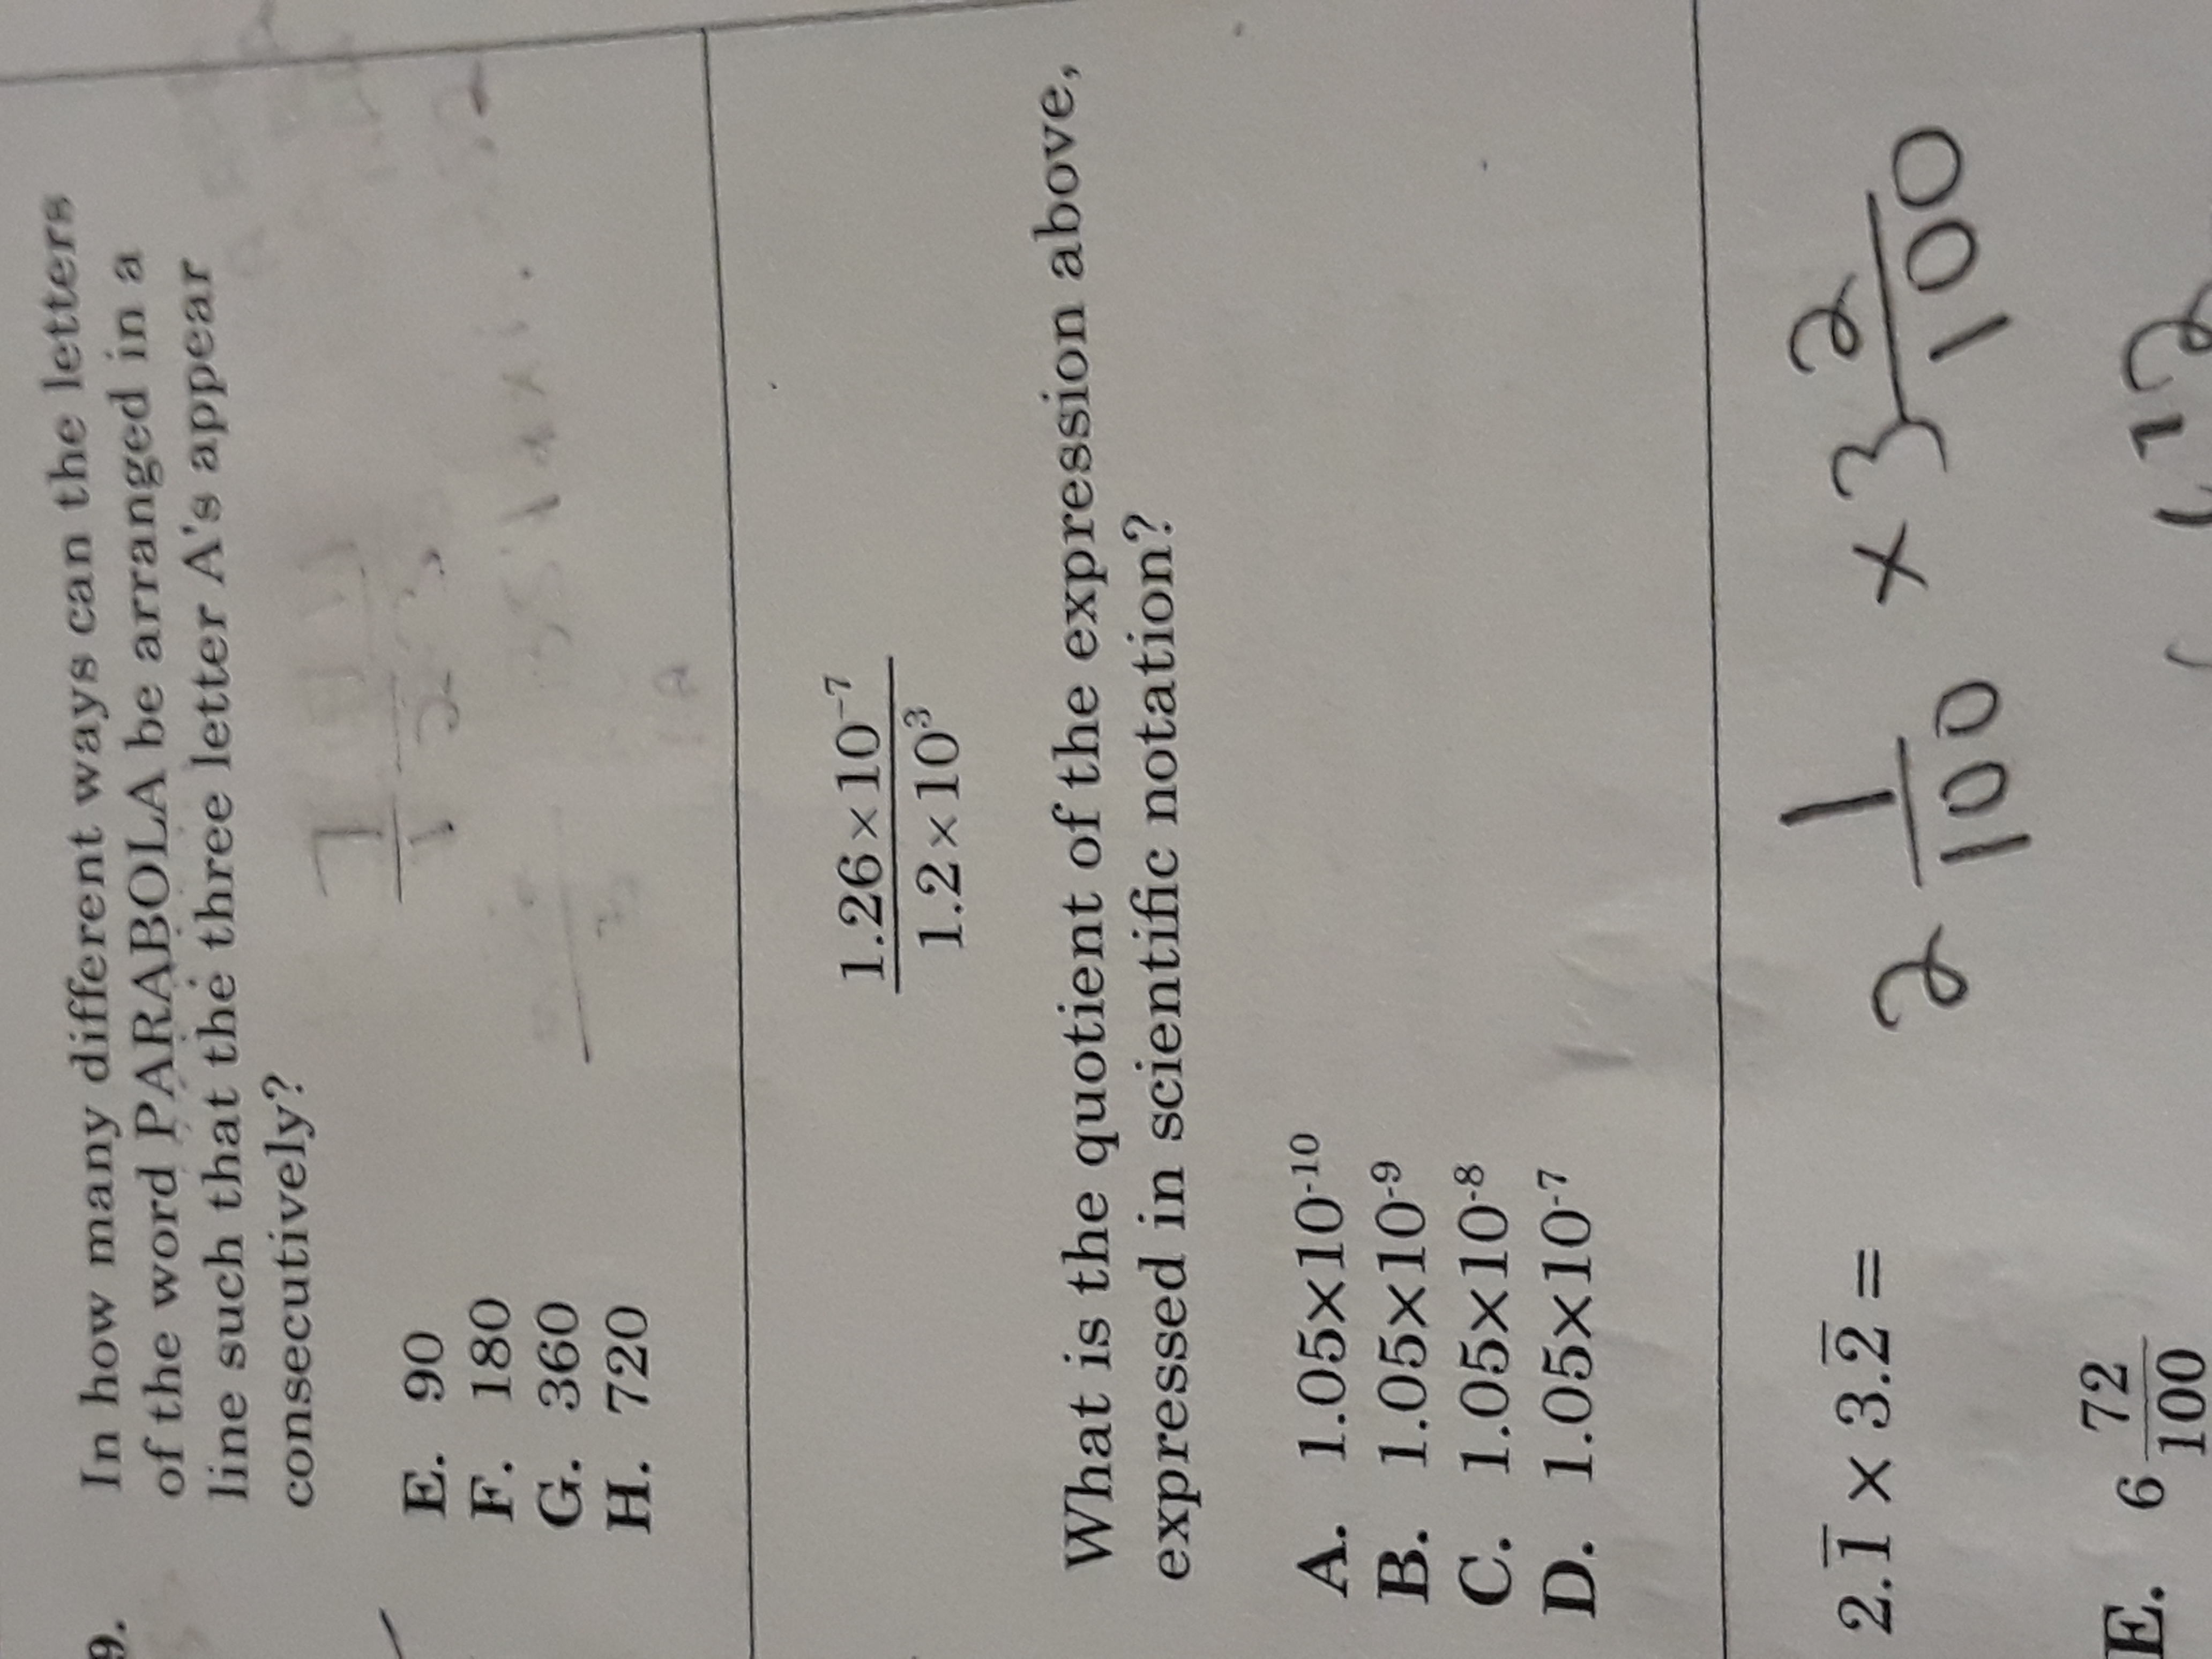 9. In how many different ways can the letters
of the word PARABOLA be arranged in a
line such that the three letter A's appear
consecutively?
E. 90
F. 180
G. 360
H. 720
1.26×10⁻⁷
1.2×10³
What is the quotient of the expression above,
expressed in scientific notation?
A. 1.05×10⁻¹⁰
B. 1.05×10⁻⁹
C. 1.05×10⁻⁸
D. 1.05×10⁻⁷
2.1̅ × 3.2̅ =
2 1/100 × 3 2/100
E. 6 72/100